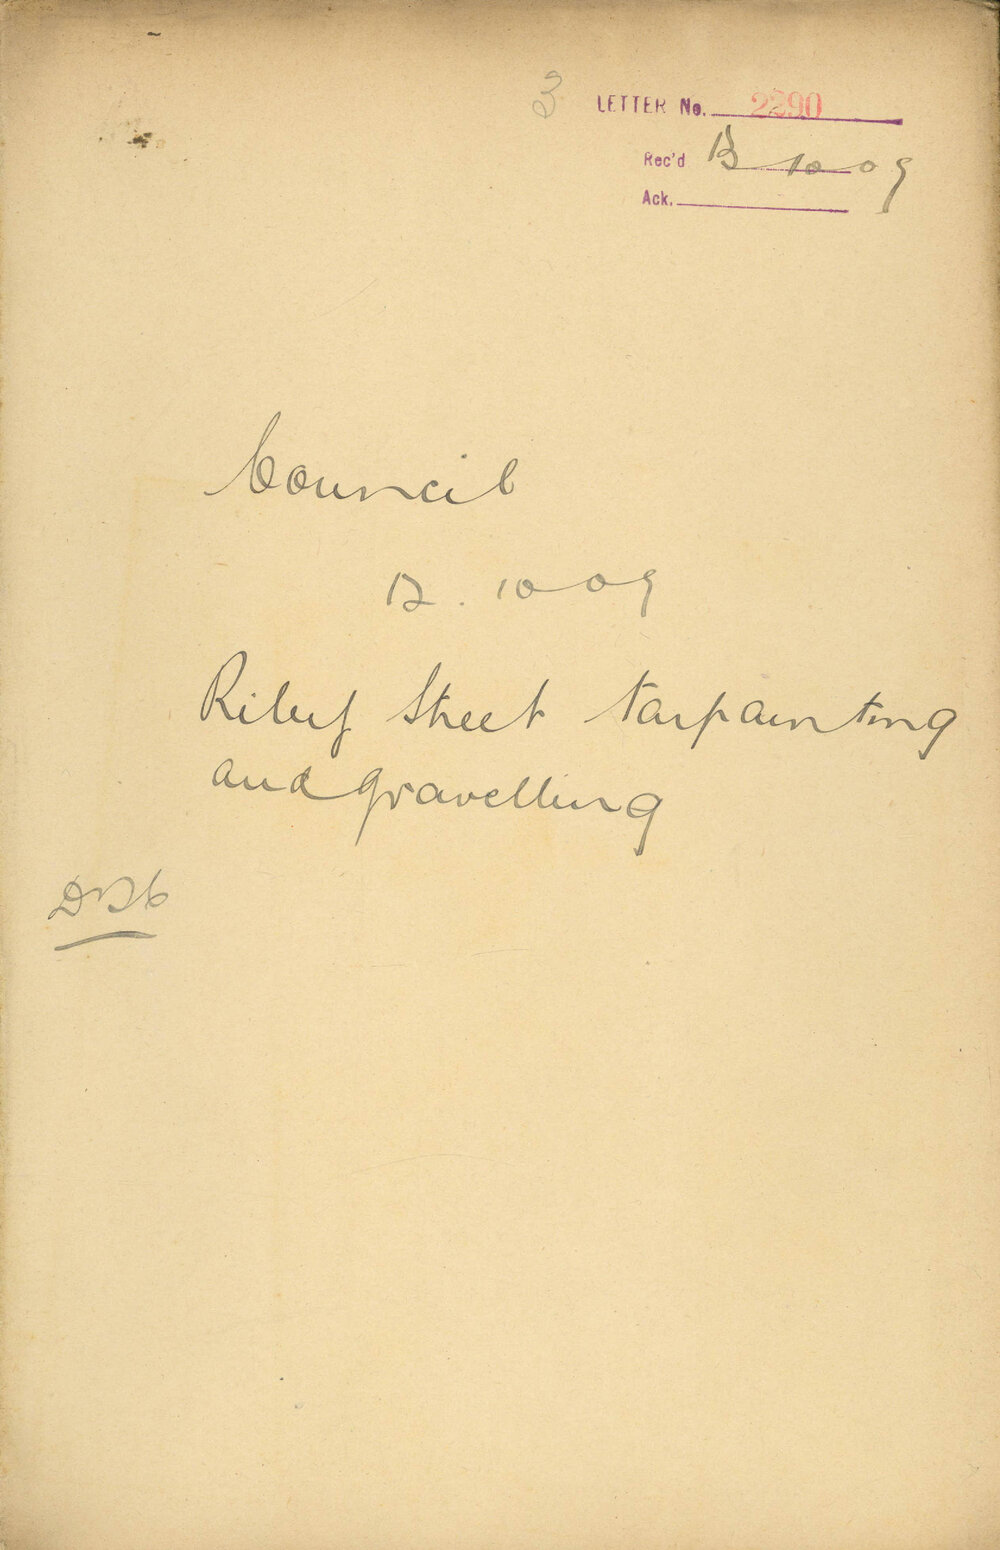 3
LETTER No. 2290
Rec'd 13 10 09
Ack.
Council
12. 10 09
Riley Street tarpainting
and gravelling